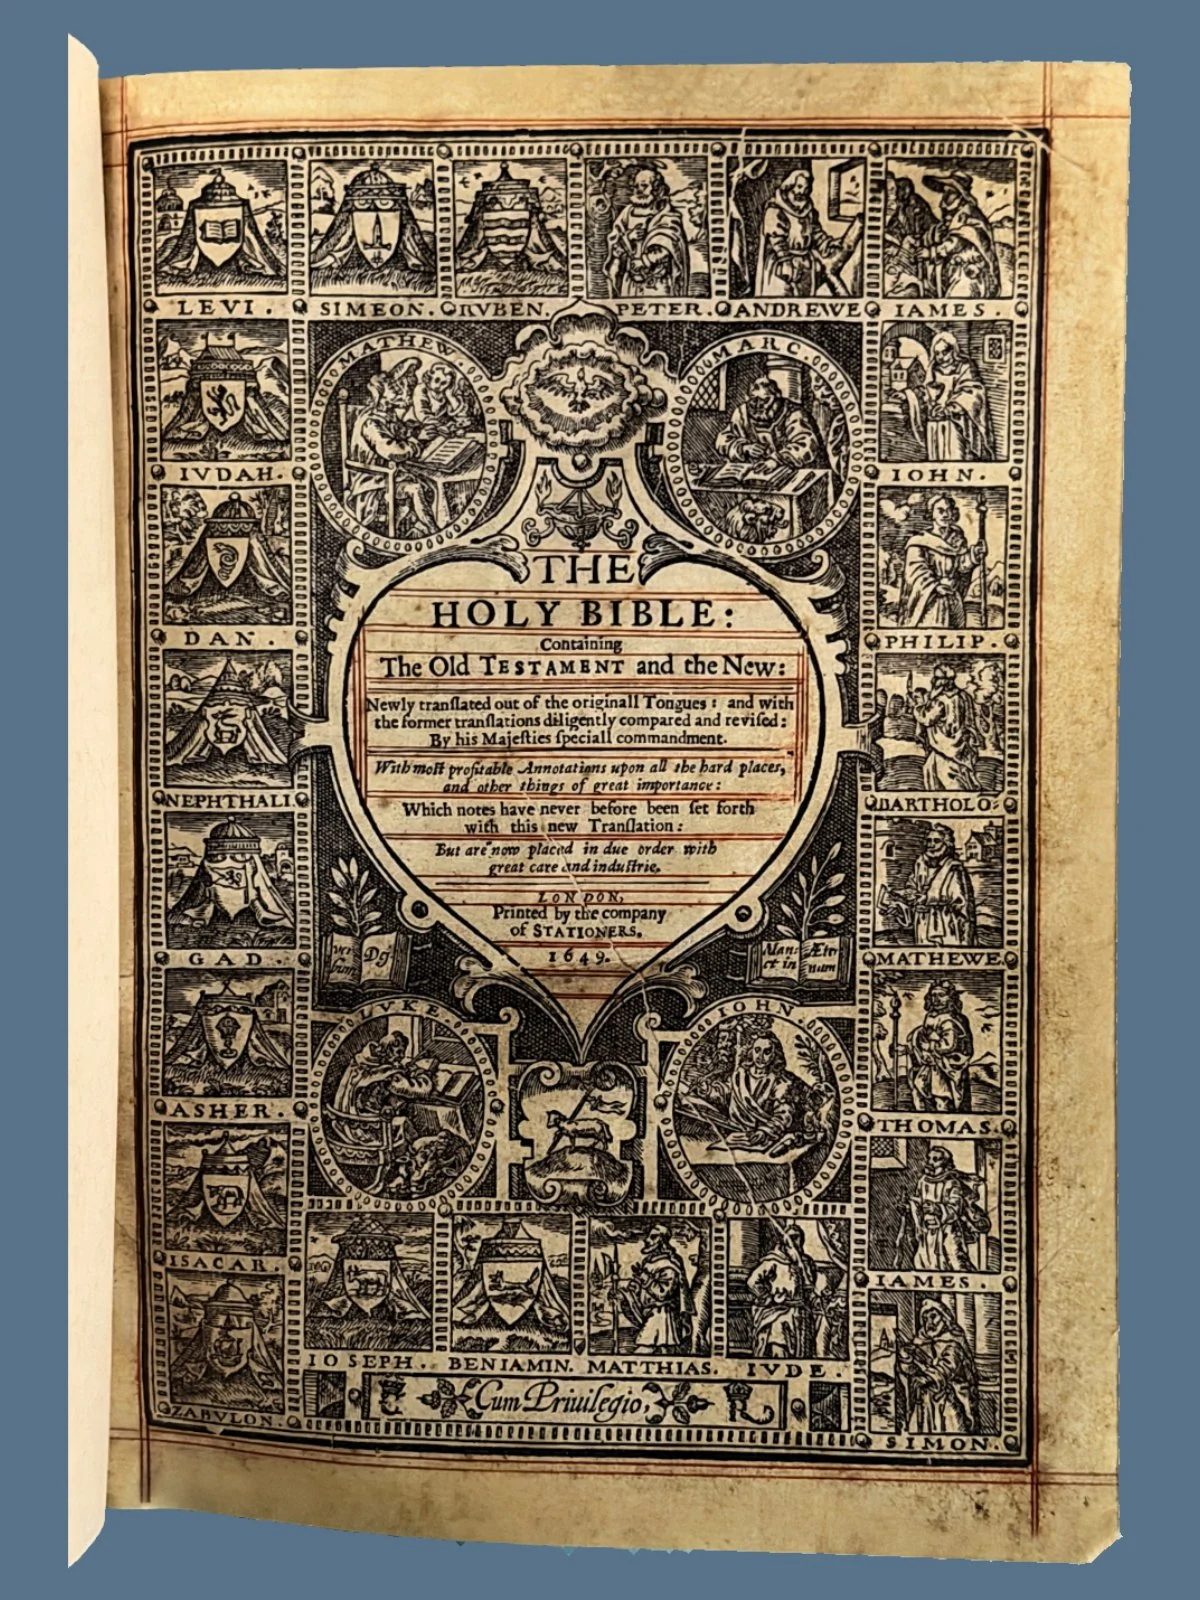 LEVI.
SIMEON.
RVBEN.
PETER.
ANDREWE
IAMES.
MATHEW.
MARC.
IVDAH.
IOHN.
DAN.
PHILIP.
THE
HOLY BIBLE:
Containing
The Old TESTAMENT and the New:
Newly tranſlated out of the originall Tongues: and with
the former tranſlations diligently compared and reviſed:
By his Majeſties ſpeciall commandment.
With moſt profitable Annotations upon all the hard places,
and other things of great importance:
Which notes have never before been ſet forth
with this new Tranſlation:
But are now placed in due order with
great care and induſtrie.
LONDON,
Printed by the company
of STATIONERS.
1649.
NEPHTHALI.
BARTHOLO:
GAD.
MATHEWE
ver
bum
Dei
Manet
et in
Æter
num
LVKE.
IOHN
ASHER.
THOMAS.
ISACAR.
IAMES.
IOSEPH..
BENIAMIN.
MATTHIAS.
IVDE.
ZABVLON.
Cum Priuilegio,
R
SIMON.